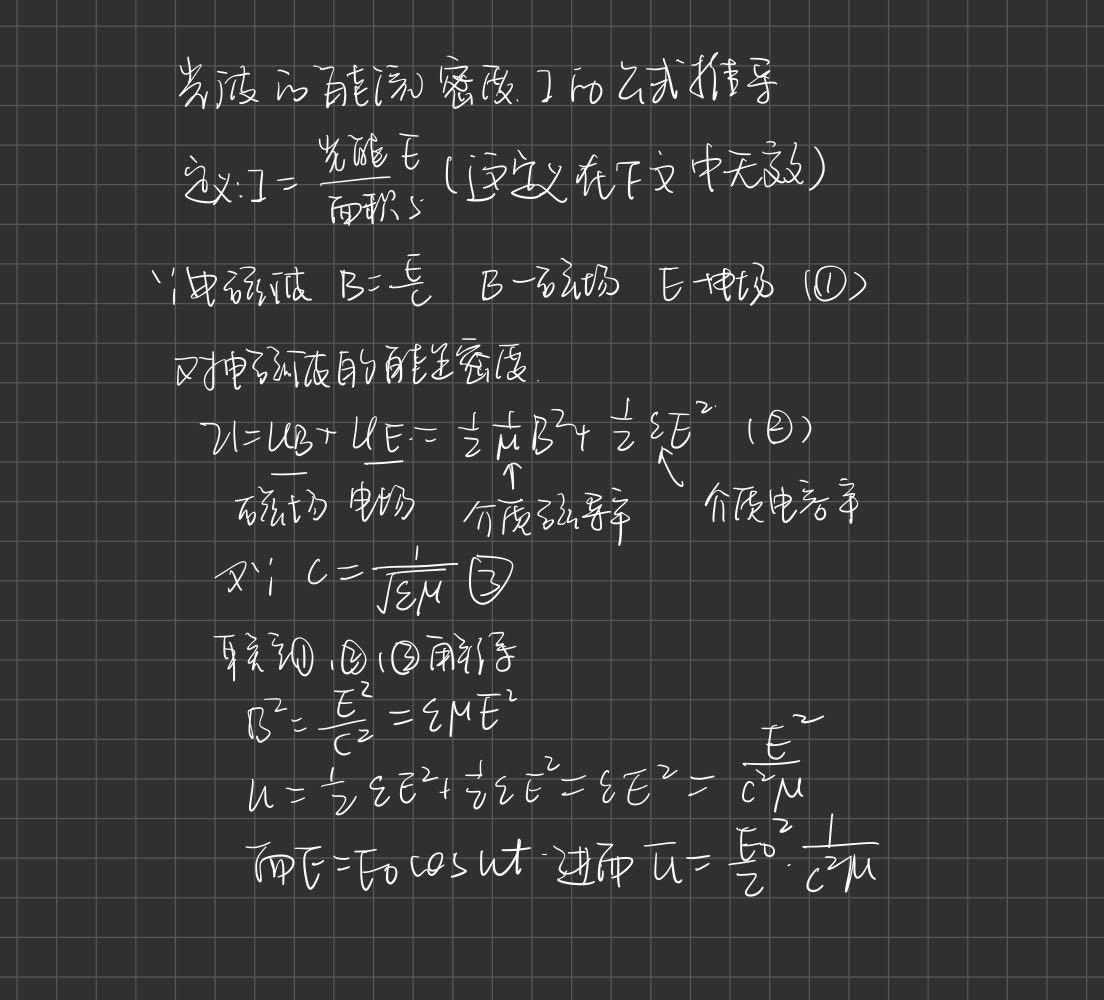 光波的能流密度I的公式推导
定义:I=光能E/面积S(这定义在下文中无效)
∵电磁波 B=E/c B-磁场 E-电场 (①)
又对电磁波的能量密度.
u=uB+uE=1/2 1/μ B²+1/2 εE² (②)
磁场 电场 介质磁导率 介质电容率
又∵ c=1/√εμ ③
联立①,②,③解得
B²=E²/c²=εμE²
u=1/2 εE²+1/2 εE²=εE²=E²/c²μ
而E=E₀cosωt.进而 ū=E₀²/2·1/c²μ